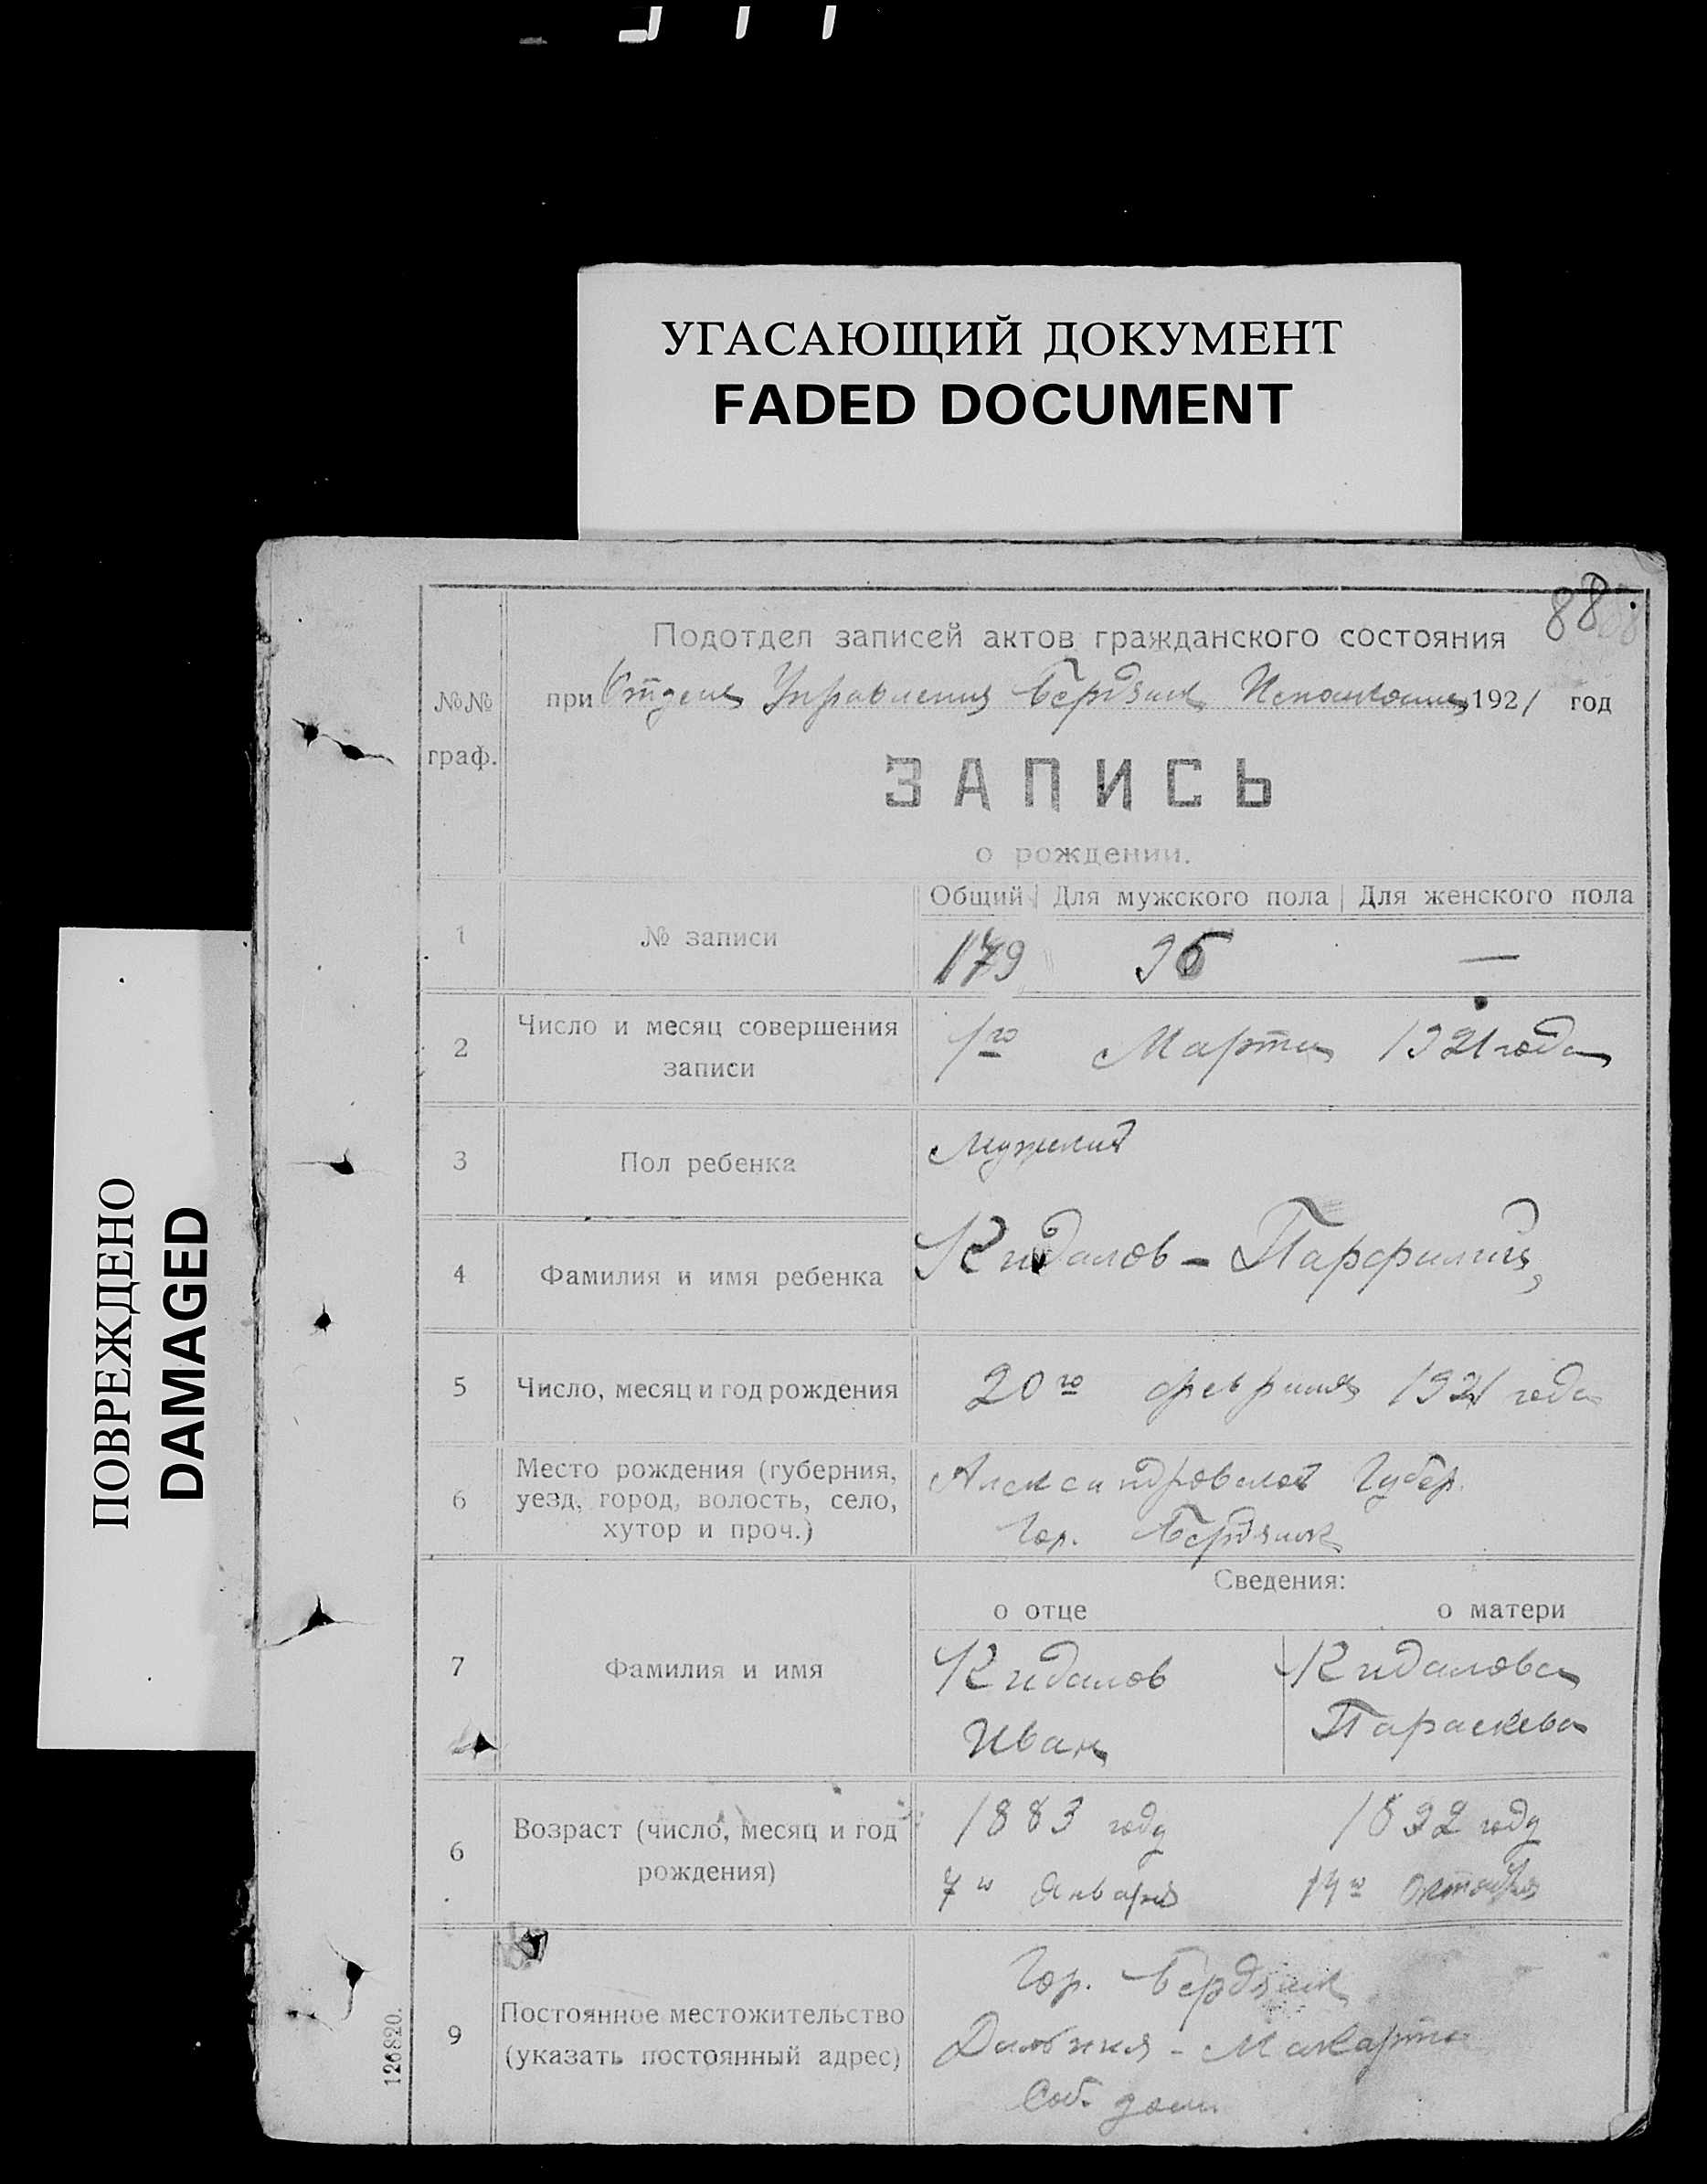 УГАСАЮЩИЙ ДОКУМЕНТ
FADED DOCUMENT
ПОВРЕЖДЕНО
DAMAGED
88
Подотдел записей актов гражданского состояния
№№ граф.
при Отделе Управления Бердянск Исполкома 1921 год
ЗАПИСЬ
о рождении.
Общий Для мужского пола Для женского пола
1 № записи 179 96 —
2 Число и месяц совершения записи 1го Марта 1921 года
3 Пол ребенка Мужской
4 Фамилия и имя ребенка Кидалов - Парфилий
5 Число, месяц и год рождения 20го февраля 1921 года
6 Место рождения (губерния, Александровской Губер.
уезд, город, волость, село, Гор. Бердянск
хутор и проч.)
Сведения:
о отце о матери
7 Фамилия и имя Кидалов Кидалова
Иван Параскева
6 Возраст (число, месяц и год 1883 году 1892 году
рождения) 7го Января 14го Октября
9 Постоянное местожительство Гор. Бердянск
(указать постоянный адрес) Дальняя - Макорта
Соб. дом
126820.